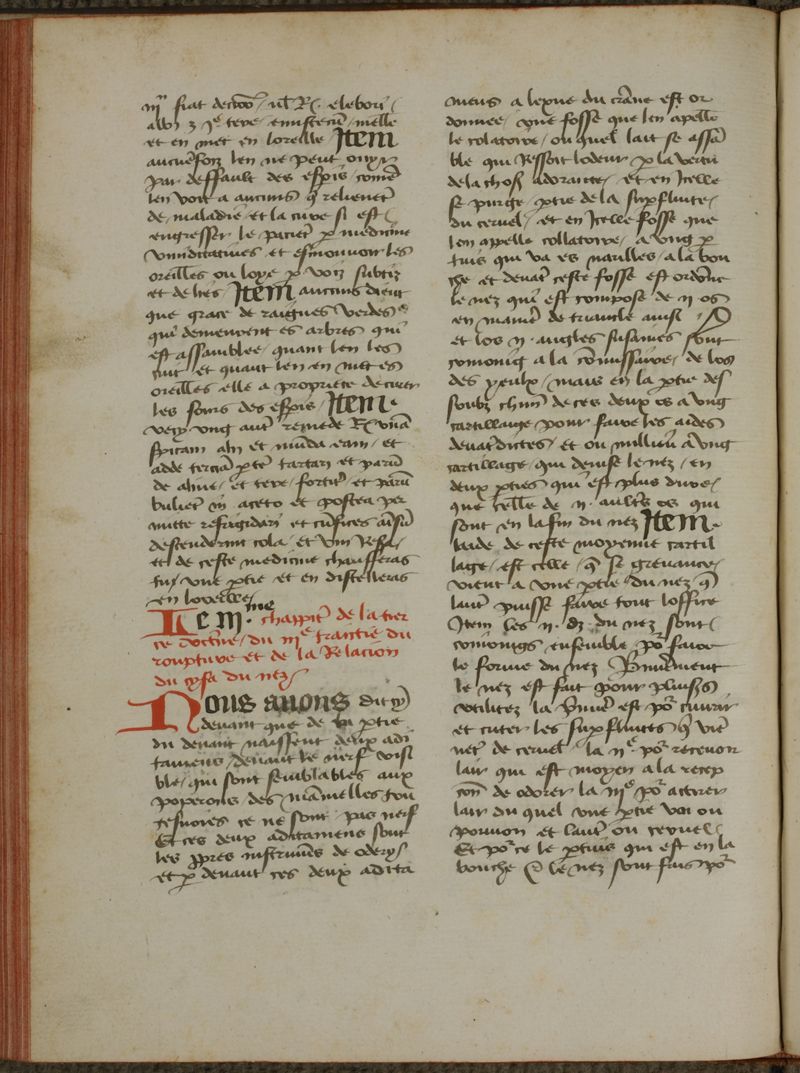 fiat decoctio
et en met en loreille Item
aucunesfois len ne peut ouyr
par deffault des esperis come
len voit a aucuns
de maladie et la cure si est
engresser le pacient medicine
et esmouvoir les
oreilles ou loye voiz subtiz
et de lres Item aucuns dient
que grace de raignes verdes
qui demeurent es arbres qui
est assamblee quant len les
cuit et quant len en met es
oreilles elle a propriete de curer
les sours des esperis Item
vecy ung autre remede Rx una
spicam alii et munda eam et
adde terciam partem tartari et parum
de alune et tere fortiter et parum
buliet in aceto et postea per
mitte refrigidari et
descenderint cola et
et de ceste medicine chaufferas
une partie et en distilleras
en loreille
Le iiii me chappitre de la tier
ce doctrine du iii e traictie du
rompture et de la Relacion
du du nez
Nous avons dit cy
devant que de la partie
du devant naissent deux adi
tamens devant le nerf visi
ble qui sont semblables aux
poperons des mamelles tou
tesvoies ce ne sont pas nerf
Et ces deux aditamens sont
les propres instrumens de oderer
et par devant ces deux adita
mens a lexue du crane est or
donnee une fosse que len apelle
le colatoire ou quel lait se assem
ble qui Ressoit lodeur par la vertu
de la chose adorante et en Icelle
se purge partie de la superfluite
du cervel et en Icelle fosse que
len appelle collatoire a ung per
tuis qui va es narilles a la bou
che et devant ceste fosse est ordonne
le nez qui est compose de ii os
en maniere de triancle ainsi
et les ii angles sont
conioings a la commissure de los
des yeulx mais en la partie des
soubz chun de ces deux os a ung
cartillaige pour faire les aides
devant dictes et ou millieu a ung
cartillage qui devise le nez en
deux parties qui est plus dure
que celle de ii aultres os qui
sont en la fin du nez Item
laide de ceste moyenne cartil
lage est celle que se grevance
vient a une partie du nez que
lautre puisse faire tout loffice
Item les ii du nez sont
conioings ensemble pour faire
la forme du nez Premierement
le nez est fait pour pluiss
utilitez la premiere est pour couvrir
et curer les superfluites
de cervel la ii e pour recevoir
lair qui est moyen a la recep
cion de odorer la iii e pour attrer
lair du quel une partie va ou
poumon et lautre ou cervel
Et pour ce le pertuis qui est en la
bouche le nez sont fais pour